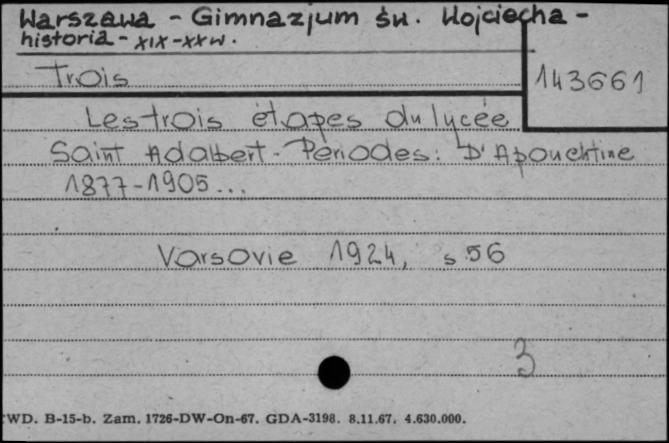 Warszawa - Gimnazjum św. Wojciecha -
historia - XIX-XX w.
Trois
143661
Les trois étapes du lycée
Saint Adalbert - Périodes: D'Apouchtine
1877-1905...
Varsovie 1924, s 56
3
WD. B-15-b. Zam. 1726-DW-On-67. GDA-3198. 8.11.67. 4.630.000.